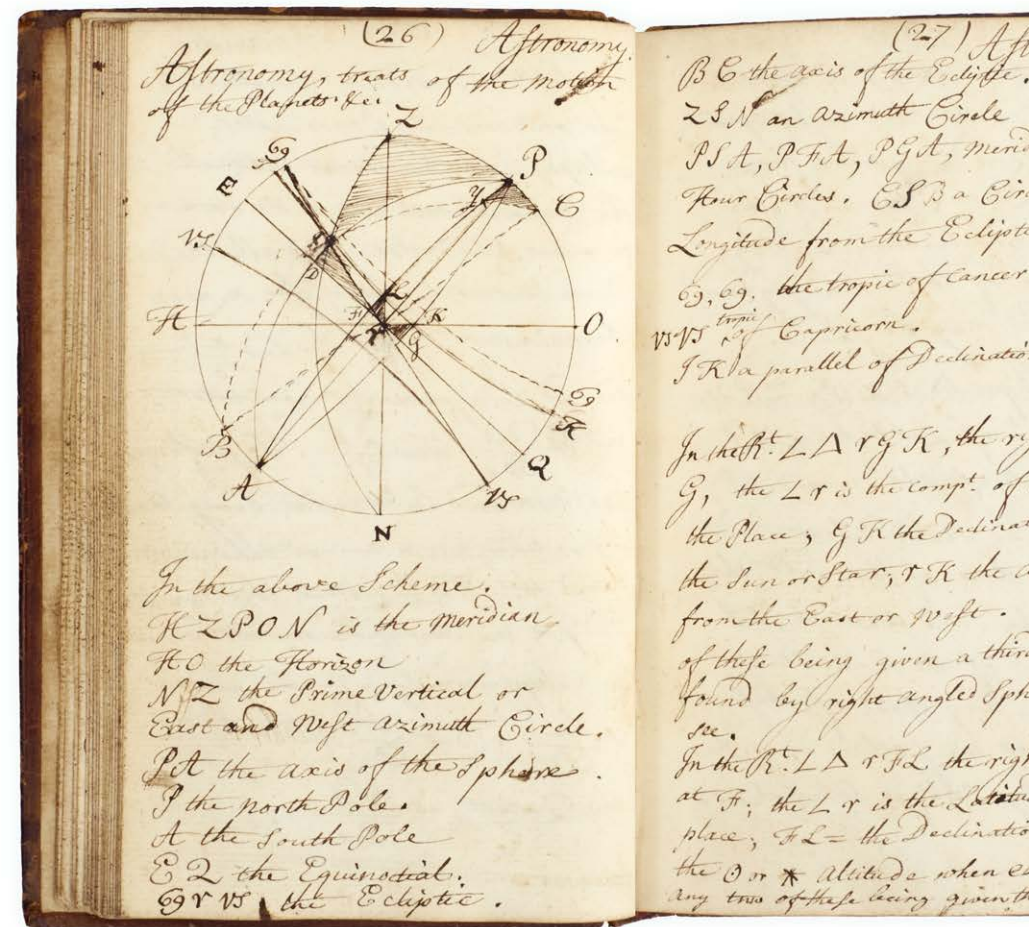 (26) Astronomy.
Astronomy, treats of the motion
of the Planets &c.
Z
♋
P
E
Y
C
♑
S
D
L
H
F
K
O
♈
G
♋
K
B
Q
A
♑
N
In the above Scheme.
HZPON is the meridian
HO the Horizon
NZ the Prime Vertical or
East and West azimuth Circle.
PA the axis of the Sphere.
P the north Pole.
A the South Pole
EQ the Equinoctial.
♋ ♈ ♑, the Ecliptic.
(27) Ast
BC the axis of the Ecliptic.
ZSN an azimuth Circle
PSA, PFA, PGA, merid
Hour Circles. CSB a Cir
Longitude from the Eclipti
♋, ♋. the tropic of Cancer
♑ ♑ tropic of Capricorn.
IK a parallel of Declinatio
In the Rt. ∠ Δ ♈GK, the rig
G, the ∠ ♈ is the compt. of
the Place; GK the Declinat
the Sun or Star; ♈K the
from the East or West.
of these being given a third
found by right angled Sph
see.
In the Rt. ∠ Δ ♈FL the righ
at F; the ∠ ♈ is the Latitu
place; FL = the Declinatio
the ʘ or * altitude when
any two of these being given th